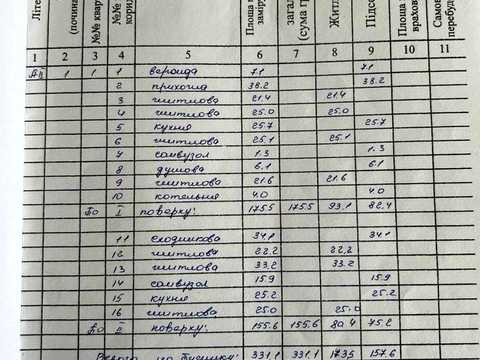 Літе
(почина
№№ квар
№№
корид
Площа п
заміру
загал
(сума гр
Жит
Підсо
Площа
врахов
Самов
перебуд
1 2 3 4 5 6 7 8 9 10 11
1 1 1 веранда 7.1 7.1
2 прихожа 38.2 38.2
3 житлова 21.4 21.4
4 житлова 25.0 25.0
5 кухня 25.7 25.7
6 житлова 25.1 25.1
7 санвузол 1.3 1.3
8 душова 6.1 6.1
9 житлова 21.6 21.6
10 котельня 4.0 4.0
По I поверху: 175.5 175.5 93.1 82.4
11 34.1 34.1
12 житлова 22.2 22.2
13 житлова 33.2 33.2
14 санвузол 15.9 15.9
15 кухня 25.2 25.2
16 житлова 25.0 25.0
По II поверху: 155.6 155.6 80.4 75.2
Всього по будинку: 331.1 331.1 173.5 157.6